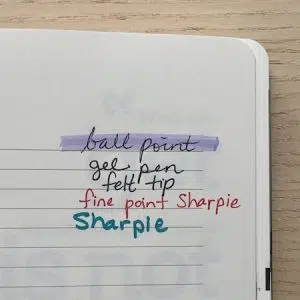 ball point
gel pen
felt tip
fine point Sharpie
Sharpie